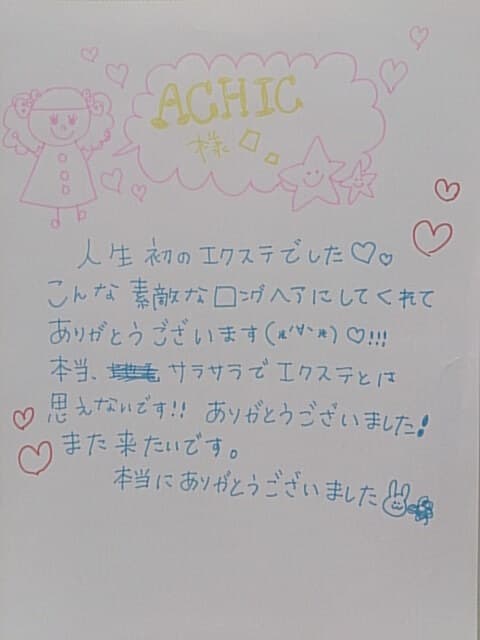 ACHIC
様
人生初のエクステでした♡♡
こんな素敵なロングヘアにしてくれて
ありがとうございます(*'∀'*)♡!!!
本当、サラサラでエクステとは
思えないです!! ありがとうございました!
また来たいです。
本当にありがとうございました